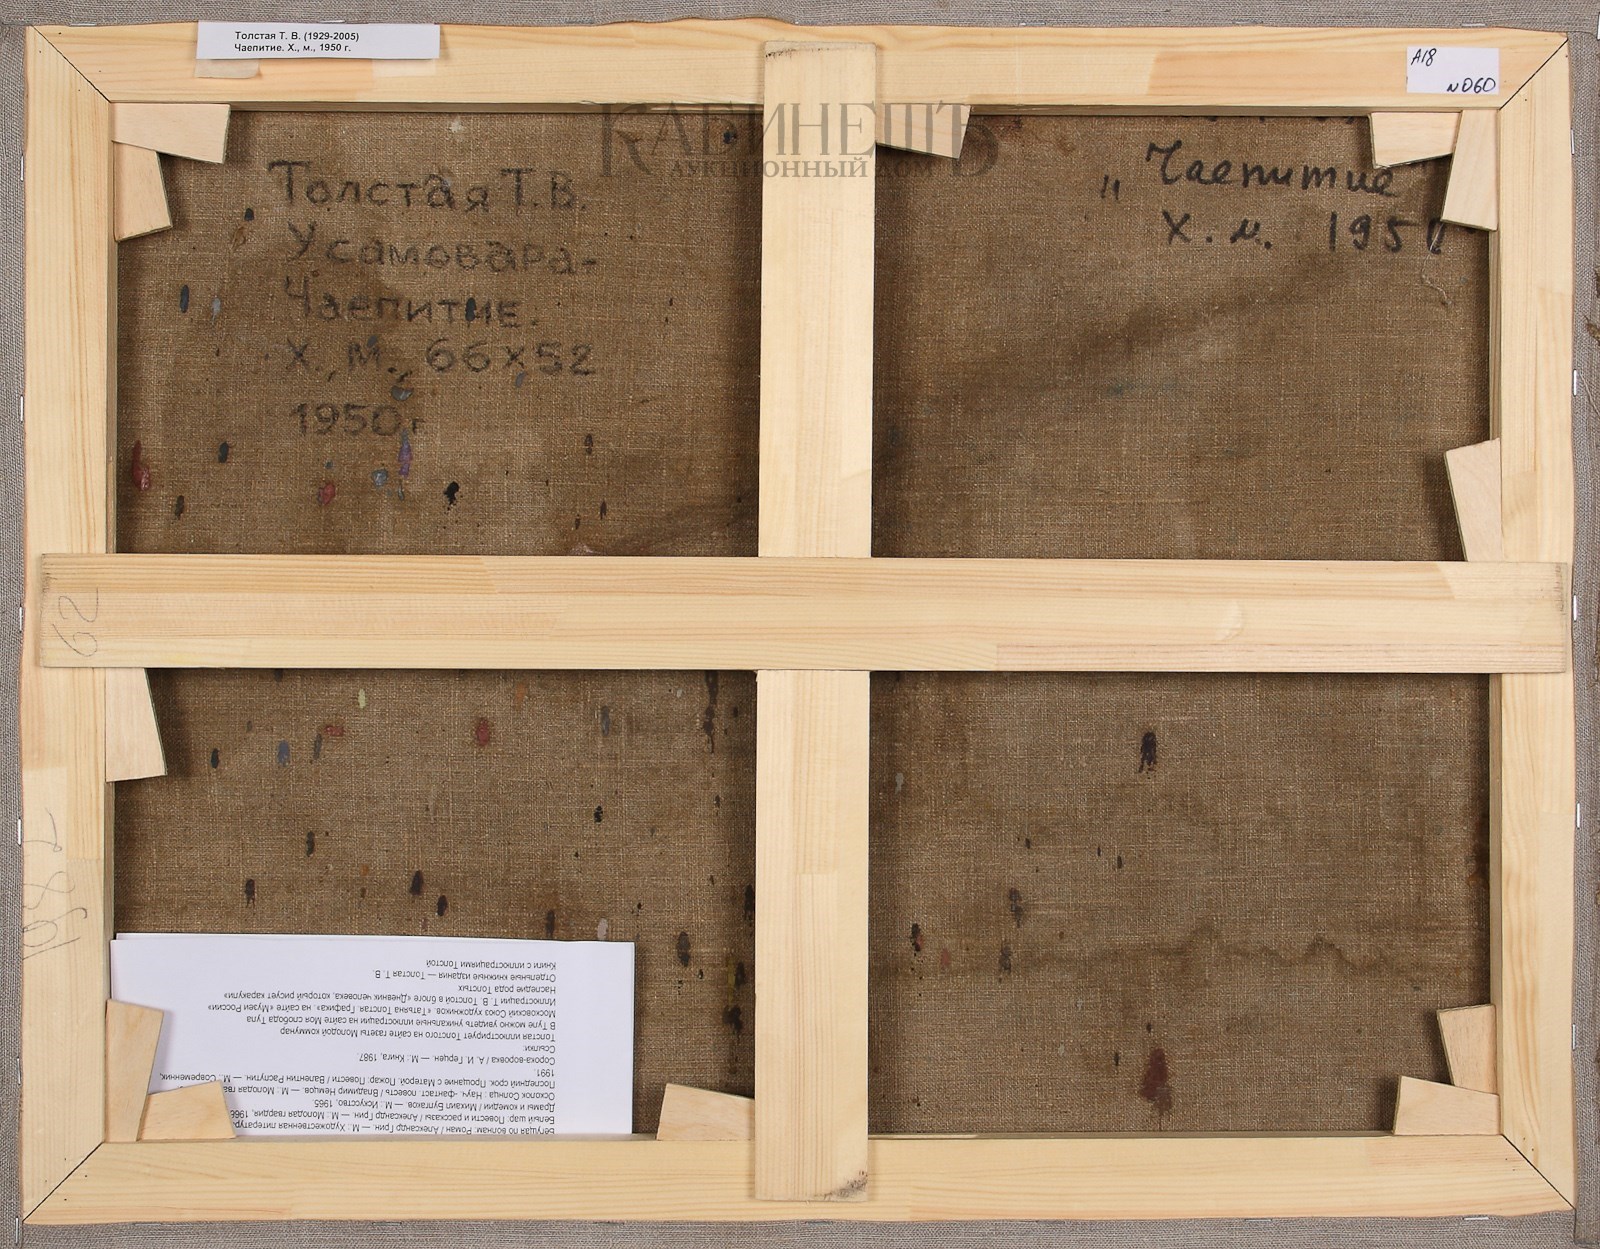 Толстая Т. В. (1929-2005)
Чаепитие. Х., м., 1950 г.
А18
№060
КАБИНЕТЪ
АУКЦИОННЫЙ ДОМ
Толстая Т.В.
У самовара-
Чаепитие.
Х., м., 66х52
1950г
„ Чаепитие
Х. м. 1950
62
Бегущая по волнам: Роман / Александр Грин. — М.: Художественная
Белый шар: Повести и рассказы / Александр Грин. — М.: Молодая гвардия, 1966
Драмы и комедии / Михаил Булгаков. — М.: Искусство, 1965.
Осколок Солнца : Науч. -фантаст. повесть / Владимир Немцов. — М.: Молодая
Последний срок. Прощание с Матерой. Пожар: Повести / Валентин Распутин. — М.: Современник,
1991.
Сорока-воровка / А. И. Герцен. — М.: Книга, 1987.
Ссылки:
Толстая иллюстрирует Толстого на сайте газеты Молодой коммунар
В Туле можно увидеть уникальные иллюстрации на сайте Моя слобода Тула
Московский Союз художников. «Татьяна Толстая. Графика». на сайте «Музеи России»
Иллюстрации Т. В. Толстой в блоге «Дневник человека, который рисует каракули»
Наследие рода Толстых
Отдельные книжные издания — Толстая Т. В.
Книги с иллюстрациями Толстой